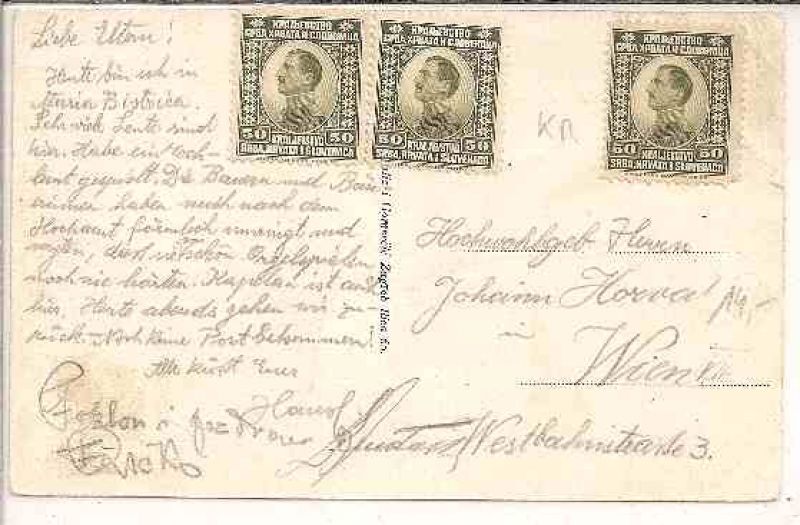 Liebe Eltern!
Heute bin ich in
Maria Bistrica.
Sehr viele Leute sind
hier. Habe ein Hoch-
amt gespielt. Die Bauern und Bäue-
rinnen haben mich nach dem
Hochamt förmlich umringt und
sagten, dass
noch nie hörten. Kaplan ist auch
hier. Heute abends gehen wir zu-
rück. Noch keine Post bekommen
Alle küsst Euer
КРАЉЕВСТВО
СРБА, ХРВАТА И СЛОВЕНАЦА
50 KRALJEVSTVO 50
SRBA, HRVATA I SLOVENACA
КРАЉЕВСТВО
СРБА, ХРВАТА И СЛОВЕНАЦА
50 KRALJEVSTVO 50
SRBA, HRVATA I SLOVENACA
КРАЉЕВСТВО
СРБА, ХРВАТА И СЛОВЕНАЦА
50 KRALJEVSTVO 50
SRBA, HRVATA I SLOVENACA
Zagreb
Hochwohlgeb Herrn
Johann Horvat
in
Wien
Westbahnstraße 3.